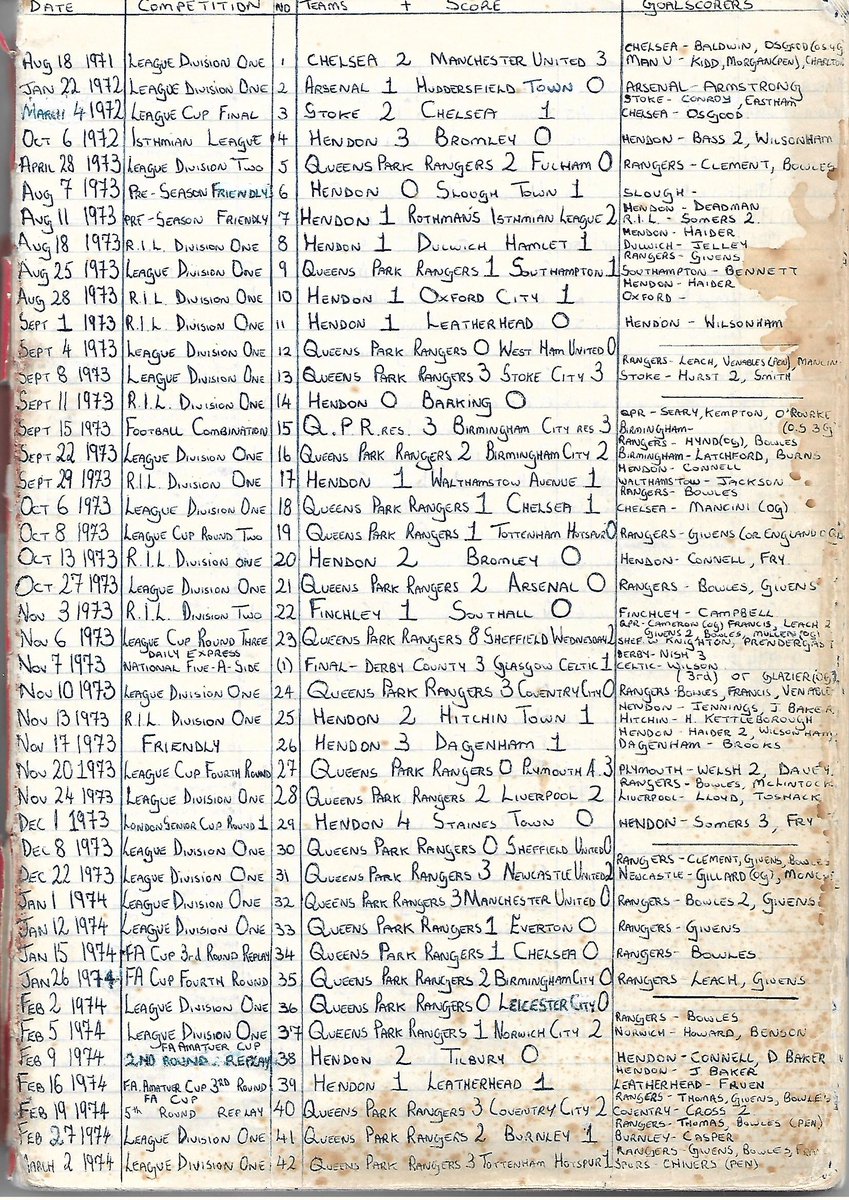 DATE COMPETITION NO TEAMS + SCORE GOALSCORERS
CHELSEA - BALDWIN, OSGOOD (OS 4G
AUG 18 1971 LEAGUE DIVISION ONE 1 CHELSEA 2 MANCHESTER UNITED 3 MAN U - KIDD, MORGAN (PEN), CHARLTON
JAN 22 1972 LEAGUE DIVISION ONE 2 ARSENAL 1 HUDDERSFIELD TOWN 0 ARSENAL - ARMSTRONG
STOKE - CONROY, EASTHAM
MARCH 4 1972 LEAGUE CUP FINAL 3 STOKE 2 CHELSEA 1 CHELSEA - OSGOOD
OCT 6 1972 ISTHMIAN LEAGUE 4 HENDON 3 BROMLEY 0 HENDON - BASS 2, WILSONHAM
APRIL 28 1973 LEAGUE DIVISION TWO 5 QUEENS PARK RANGERS 2 FULHAM 0 RANGERS - CLEMENT, BOWLES
AUG 7 1973 PRE-SEASON FRIENDLY 6 HENDON 0 SLOUGH TOWN 1 SLOUGH -
HENDON - DEADMAN
AUG 11 1973 PRE-SEASON FRIENDLY 7 HENDON 1 ROTHMANS ISTHMIAN LEAGUE 2 R.I.L. - SOMERS 2.
HENDON - HAIDER
AUG 18 1973 R.I.L. DIVISION ONE 8 HENDON 1 DULWICH HAMLET 1 DULWICH - JELLEY
RANGERS - GIVENS
AUG 25 1973 LEAGUE DIVISION ONE 9 QUEENS PARK RANGERS 1 SOUTHAMPTON 1 SOUTHAMPTON - BENNETT
HENDON - HAIDER
AUG 28 1973 R.I.L. DIVISION ONE 10 HENDON 1 OXFORD CITY 1 OXFORD -
SEPT 1 1973 R.I.L. DIVISION ONE 11 HENDON 1 LEATHERHEAD 0 HENDON - WILSONHAM
SEPT 4 1973 LEAGUE DIVISION ONE 12 QUEENS PARK RANGERS 0 WEST HAM UNITED 0
RANGERS - LEACH, VENABLES (PEN), MANCINI
SEPT 8 1973 LEAGUE DIVISION ONE 13 QUEENS PARK RANGERS 3 STOKE CITY 3 STOKE - HURST 2, SMITH
SEPT 11 1973 R.I.L. DIVISION ONE 14 HENDON 0 BARKING 0
QPR - SEARY, KEMPTON, O'ROURKE
SEPT 15 1973 FOOTBALL COMBINATION 15 Q.P.R. RES. 3 BIRMINGHAM CITY RES 3 BIRMINGHAM - (O.S 3 G
RANGERS - HYND (OG), BOWLES
SEPT 22 1973 LEAGUE DIVISION ONE 16 QUEENS PARK RANGERS 2 BIRMINGHAM CITY 2 BIRMINGHAM - LATCHFORD, BURNS
HENDON - CONNELL
SEPT 29 1973 R.I.L. DIVISION ONE 17 HENDON 1 WALTHAMSTOW AVENUE 1 WALTHAMSTOW - JACKSON
RANGERS - BOWLES
OCT 6 1973 LEAGUE DIVISION ONE 18 QUEENS PARK RANGERS 1 CHELSEA 1 CHELSEA - MANCINI (OG)
OCT 8 1973 LEAGUE CUP ROUND TWO 19 QUEENS PARK RANGERS 1 TOTTENHAM HOTSPUR 0 RANGERS - GIVENS (OR ENGLAND OG)
OCT 13 1973 R.I.L. DIVISION ONE 20 HENDON 2 BROMLEY 0 HENDON - CONNELL, FRY.
OCT 27 1973 LEAGUE DIVISION ONE 21 QUEENS PARK RANGERS 2 ARSENAL 0 RANGERS - BOWLES, GIVENS
NOV 3 1973 R.I.L. DIVISION TWO 22 FINCHLEY 1 SOUTHALL 0 FINCHLEY - CAMPBELL
QPR - CAMERON (OG) FRANCIS, LEACH 2
GIVENS 2, BOWLES, MULLEN (OG)
NOV 6 1973 LEAGUE CUP ROUND THREE 23 QUEENS PARK RANGERS 8 SHEFFIELD WEDNESDAY 2 SHEF. W KNIGHTON, PRENDERGAST
DAILY EXPRESS DERBY - NISH 3
NOV 7 1973 NATIONAL FIVE-A-SIDE (1) FINAL - DERBY COUNTY 3 GLASGOW CELTIC 1 CELTIC - WILSON
(3rd) OR GLAZIER (OG)
NOV 10 1973 LEAGUE DIVISION ONE 24 QUEENS PARK RANGERS 3 COVENTRY CITY 0 RANGERS - BOWLES, FRANCIS, VENABLE
HENDON - JENNINGS, J BAKER
NOV 13 1973 R.I.L. DIVISION ONE 25 HENDON 2 HITCHIN TOWN 1 HITCHIN - H. KETTLEBOROUGH
HENDON - HAIDER 2, WILSONHAM
NOV 17 1973 FRIENDLY 26 HENDON 3 DAGENHAM 1 DAGENHAM - BROOKS
NOV 20 1973 LEAGUE CUP FOURTH ROUND 27 QUEENS PARK RANGERS 0 PLYMOUTH A. 3 PLYMOUTH - WELSH 2, DAVEY.
RANGERS - BOWLES, MCLINTOCK
NOV 24 1973 LEAGUE DIVISION ONE 28 QUEENS PARK RANGERS 2 LIVERPOOL 2 LIVERPOOL - LLOYD, TOSHACK
DEC 1 1973 LONDON SENIOR CUP ROUND 1 29 HENDON 4 STAINES TOWN 0 HENDON - SOMERS 3, FRY
DEC 8 1973 LEAGUE DIVISION ONE 30 QUEENS PARK RANGERS 0 SHEFFIELD UNITED 0
RANGERS - CLEMENT, GIVENS, BOWLES
DEC 22 1973 LEAGUE DIVISION ONE 31 QUEENS PARK RANGERS 3 NEWCASTLE UNITED 2 NEWCASTLE - GILLARD (OG),
JAN 1 1974 LEAGUE DIVISION ONE 32 QUEENS PARK RANGERS 3 MANCHESTER UNITED 0 RANGERS - BOWLES 2, GIVENS
JAN 12 1974 LEAGUE DIVISION ONE 33 QUEENS PARK RANGERS 1 EVERTON 0 RANGERS - GIVENS
JAN 15 1974 FA CUP 3rd ROUND REPLAY 34 QUEENS PARK RANGERS 1 CHELSEA 0 RANGERS - BOWLES
JAN 26 1974 FA CUP FOURTH ROUND 35 QUEENS PARK RANGERS 2 BIRMINGHAM CITY 0 RANGERS LEACH, GIVENS
FEB 2 1974 LEAGUE DIVISION ONE 36 QUEENS PARK RANGERS 0 LEICESTER CITY 0
RANGERS - BOWLES
FEB 5 1974 LEAGUE DIVISION ONE 37 QUEENS PARK RANGERS 1 NORWICH CITY 2 NORWICH - HOWARD, BENSON
FA AMATUER CUP
FEB 9 1974 2ND ROUND REPLAY 38 HENDON 2 TILBURY 0 HENDON - CONNELL, D BAKER
HENDON - J BAKER
FEB 16 1974 FA. AMATUER CUP 3RD ROUND 39 HENDON 1 LEATHERHEAD 1 LEATHERHEAD - FRUEN
FA CUP RANGERS - THOMAS, GIVENS, BOWLES
FEB 19 1974 5th ROUND REPLAY 40 QUEENS PARK RANGERS 3 COVENTRY CITY 2 COVENTRY - CROSS 2
RANGERS - THOMAS, BOWLES (PEN)
FEB 27 1974 LEAGUE DIVISION ONE 41 QUEENS PARK RANGERS 2 BURNLEY 1 BURNLEY - CASPER
RANGERS - GIVENS, BOWLES, FRA
MARCH 2 1974 LEAGUE DIVISION ONE 42 QUEENS PARK RANGERS 3 TOTTENHAM HOTSPUR 1 SPURS - CHIVERS (PEN)